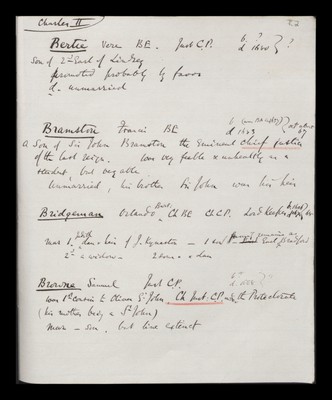 Charles II
22
Bertie Vere BE. Just C.P. b. ? d 1680 ?
Son of 2nd Earl of Lindsey
promoted probably by favor
d. unmarried
Bramston Francis BE d 1683
a Son of Sir John Bramston the Eminent Chief Justice
of the last reign. was very feeble & unhealthy as a
student, but very able
Unmarried, his brother Sir John was his heir
Bridgeman Orlando Bart. Ch BE Ch C.P. Lord Keeper
mar 1. dau & heir of J. Kynaston — 1 son Earl Bradford
2nd a widow — 2 sons & 1 dau
Browne Samuel Just C.P.
was 1st cousin to Oliver St John Ch Just: C.P. under the Protectorate
(his mother being a St John)
Marr — son, but line extinct